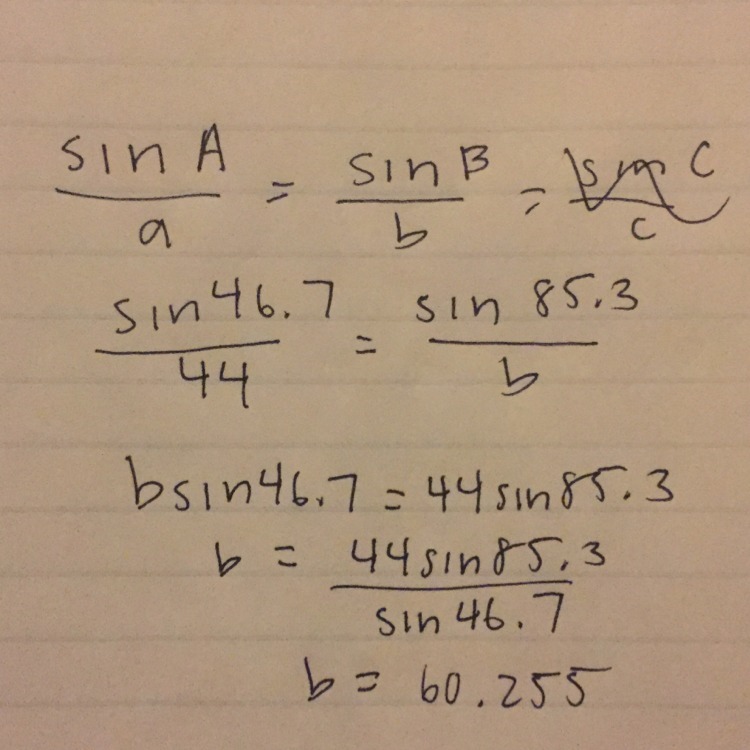 sin A / a = sin B / b = sin C / c
sin 46.7 / 44 = sin 85.3 / b
b sin 46.7 = 44 sin 85.3
b = 44 sin 85.3 / sin 46.7
b = 60.255